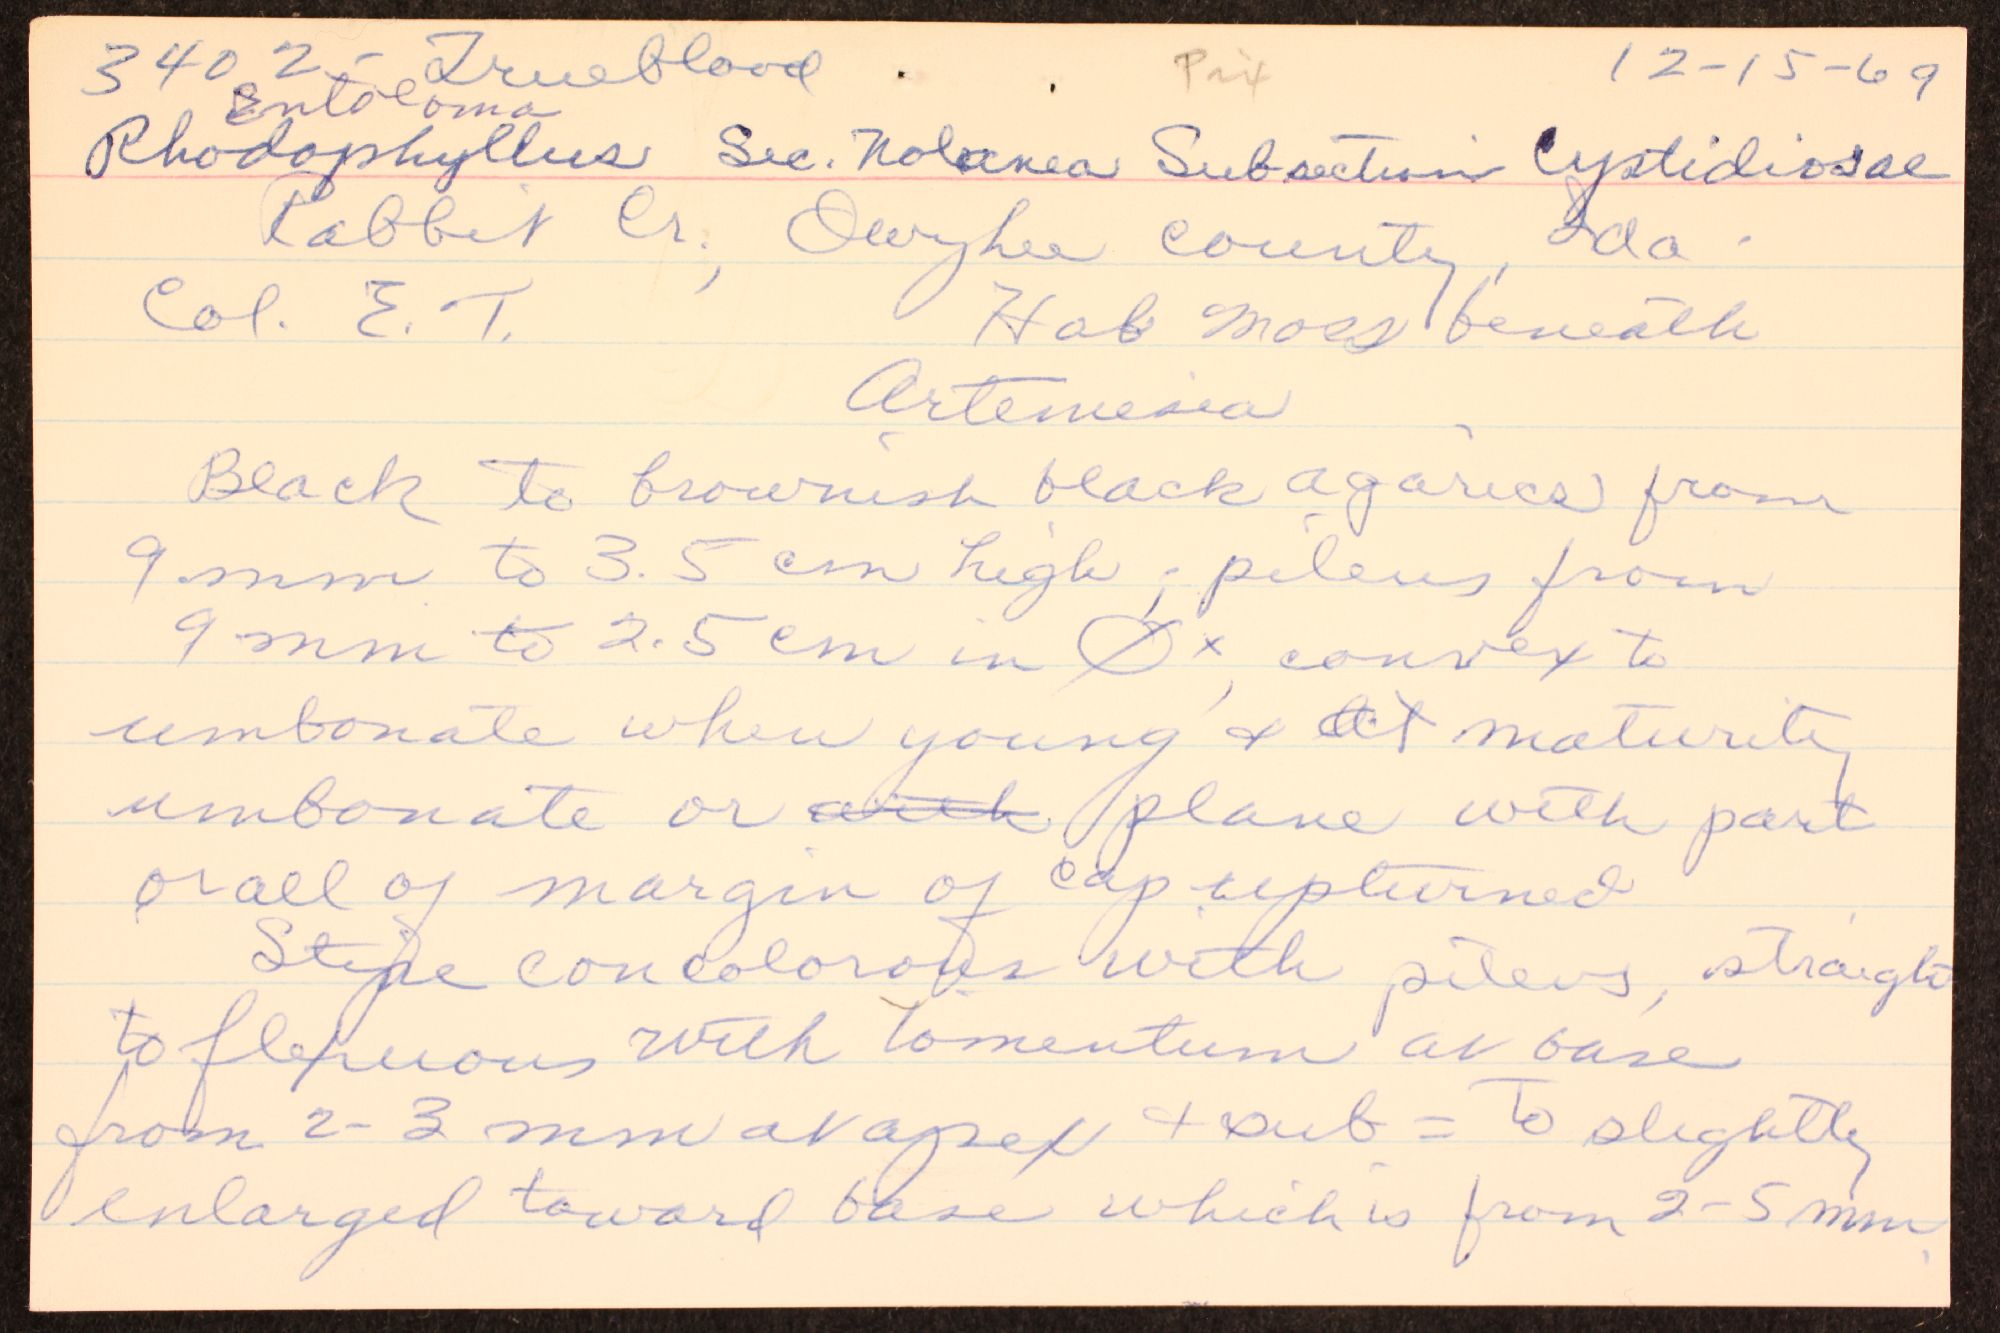 3402 - Trueblood Pix 12-15-69
Entoloma
Rhodophyllus Sec. Nolanea Subsection Cystidiosae
Rabbit Cr., Owyhee County, Ida.
Col. E. T. Hab moss beneath
Artemisia
Black to brownish black agarics from
9 mm to 3.5 cm high; pileus from
9 mm to 2.5 cm in Ø, convex to
umbonate when young & at maturity
umbonate or with plane with part
or all of margin of cap upturned
Stipe concolorous with pileus, straight
to flexuous with tomentum at base
from 2-3 mm at apex + sub = to slightly
enlarged toward base which is from 2-5 mm.